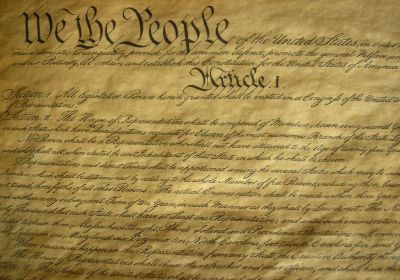 We the People of the United States, in order
insure domestic Tranquility, provide for the common defence, promote the general Welfare, and
and our Posterity, do ordain and establish this Constitution for the United States of America.
Article. I
Section. 1. All legislative Powers herein granted shall be vested in a Congress of the United
of Representatives.
Section. 2. The House of Representatives shall be composed of Members chosen every second Year
in each State shall have the Qualifications requisite for Electors of the most numerous Branch of the
No Person shall be a Representative who shall not have attained to the Age of twenty five
and who shall not, when elected, be an Inhabitant of that State in which he shall be chosen.
Representatives and direct Taxes shall be apportioned among the several States which may be
Numbers, which shall be determined by adding to the whole Number of free Persons, including those bound
three fifths of all other Persons. The actual Enumeration shall be made within three Years
and within every subsequent Term of ten Years, in such Manner as they shall by Law direct. The
thirty Thousand, but each State shall have at Least one Representative
three, Massachusetts eight, Rhode Island and Providence Plantations one,
Virginia ten, North Carolina five, South Carolina five, and
When vacancies happen in the Representation from any State, the Executive Authority
The House of Representatives shall chuse their Speaker and other Officers; and shall have
The Senate of the United States